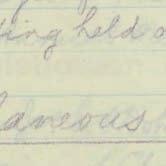 ting held a
laneous